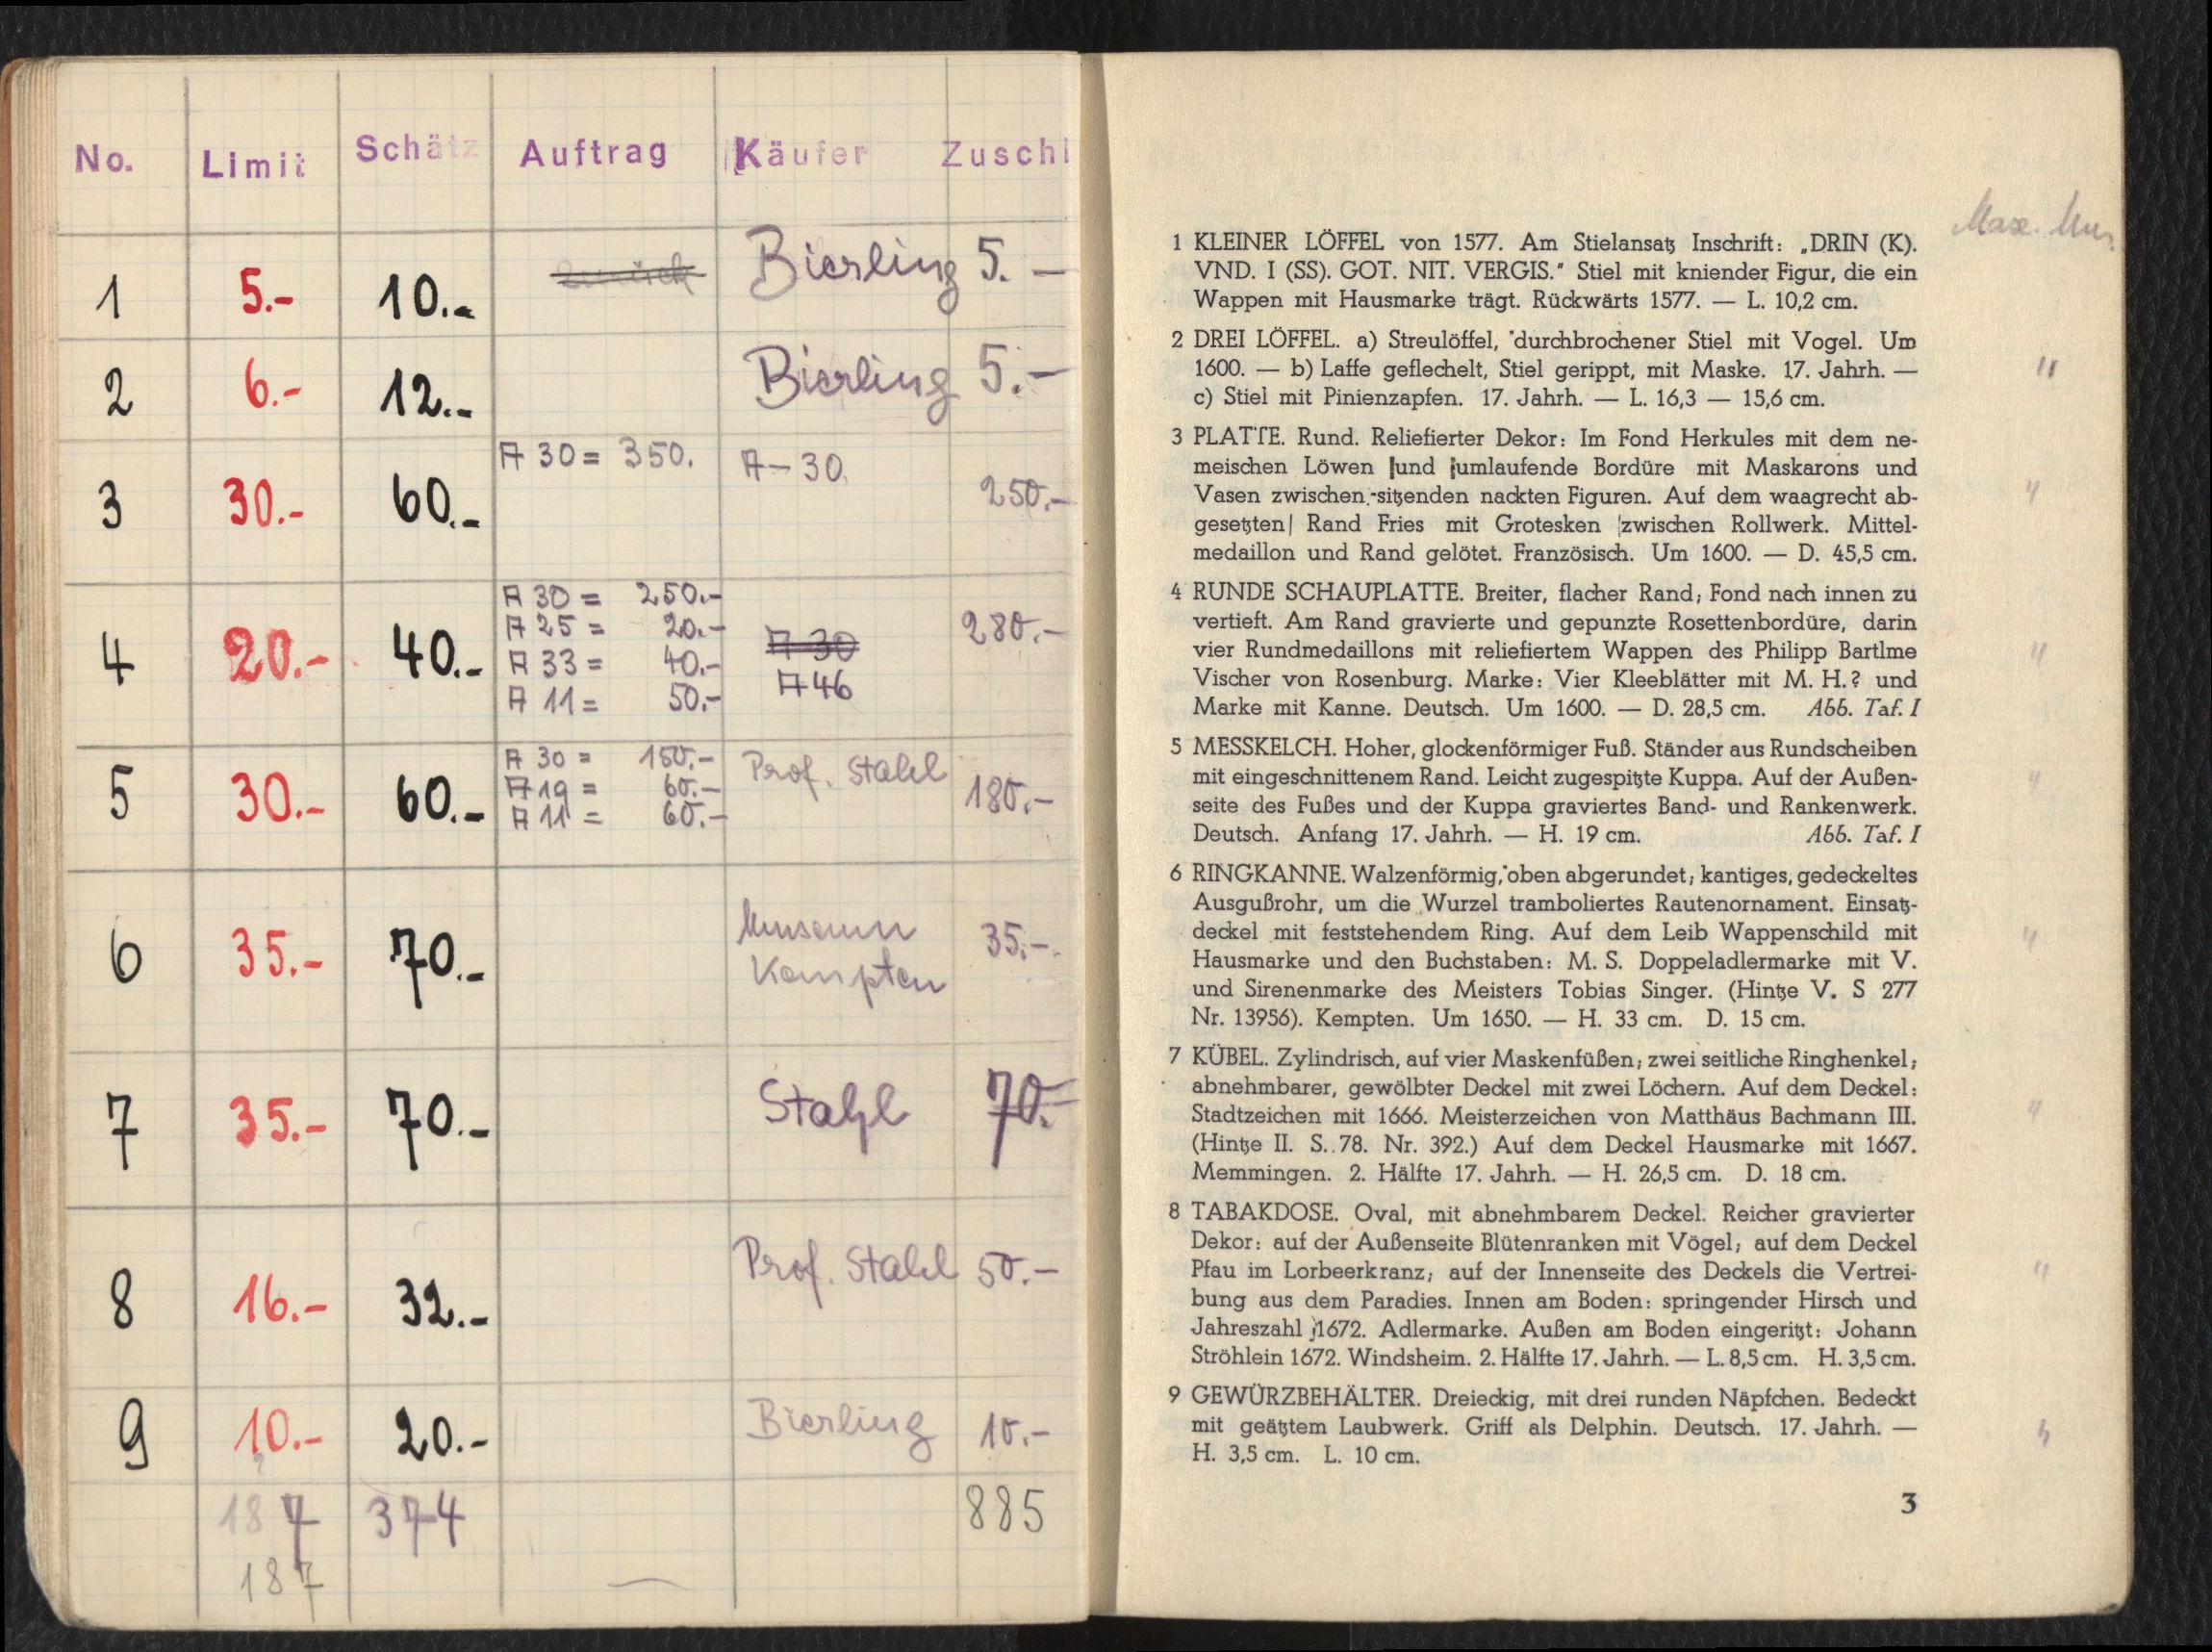 No. Limit Schätz Auftrag Käufer Zuschl
1 5.- 10.- zurück Bierling 5.-
2 6.- 12.- Bierling 5.-
3 30.- 60.- A 30 = 350. A-30. 250.-
4 20.- 40.- A 30 = 250.- A 30 280.-
A 25 = 20.-
A 33 = 40.- A 46
A 11 = 50.-
5 30.- 60.- A 30 = 150.- Prof. Stahl 180.-
A 19 = 60.-
A 11 = 60.-
6 35.- 70.- Museum 35.-
Kempten
7 35.- 70.- Stahl 70.-
8 16.- 32.- Prof. Stahl 50.-
9 10.- 20.- Bierling 10.-
187 374 885
187
Max. Mus.
1 KLEINER LÖFFEL von 1577. Am Stielansatz Inschrift: „DRIN (K).
VND. I (SS). GOT. NIT. VERGIS.“ Stiel mit kniender Figur, die ein
Wappen mit Hausmarke trägt. Rückwärts 1577. — L. 10,2 cm.
2 DREI LÖFFEL. a) Streulöffel, durchbrochener Stiel mit Vogel. Um
1600. — b) Laffe geflechelt, Stiel gerippt, mit Maske. 17. Jahrh. — "
c) Stiel mit Pinienzapfen. 17. Jahrh. — L. 16,3 — 15,6 cm.
3 PLATTE. Rund. Reliefierter Dekor: Im Fond Herkules mit dem ne-
meischen Löwen und umlaufende Bordüre mit Maskarons und
Vasen zwischen sitzenden nackten Figuren. Auf dem waagrecht ab- "
gesetzten Rand Fries mit Grotesken zwischen Rollwerk. Mittel-
medaillon und Rand gelötet. Französisch. Um 1600. — D. 45,5 cm.
4 RUNDE SCHAUPLATTE. Breiter, flacher Rand; Fond nach innen zu
vertieft. Am Rand gravierte und gepunzte Rosettenbordüre, darin
vier Rundmedaillons mit reliefiertem Wappen des Philipp Bartlme "
Vischer von Rosenburg. Marke: Vier Kleeblätter mit M. H.? und
Marke mit Kanne. Deutsch. Um 1600. — D. 28,5 cm. Abb. Taf. I
5 MESSKELCH. Hoher, glockenförmiger Fuß. Ständer aus Rundscheiben
mit eingeschnittenem Rand. Leicht zugespitzte Kuppa. Auf der Außen- "
seite des Fußes und der Kuppa graviertes Band- und Rankenwerk.
Deutsch. Anfang 17. Jahrh. — H. 19 cm. Abb. Taf. I
6 RINGKANNE. Walzenförmig, oben abgerundet; kantiges, gedeckeltes
Ausgußrohr, um die Wurzel tramboliertes Rautenornament. Einsatz-
deckel mit feststehendem Ring. Auf dem Leib Wappenschild mit "
Hausmarke und den Buchstaben: M. S. Doppeladlermarke mit V.
und Sirenenmarke des Meisters Tobias Singer. (Hintze V. S 277
Nr. 13956). Kempten. Um 1650. — H. 33 cm. D. 15 cm.
7 KÜBEL. Zylindrisch, auf vier Maskenfüßen; zwei seitliche Ringhenkel;
abnehmbarer, gewölbter Deckel mit zwei Löchern. Auf dem Deckel:
Stadtzeichen mit 1666. Meisterzeichen von Matthäus Bachmann III. "
(Hintze II. S. 78. Nr. 392.) Auf dem Deckel Hausmarke mit 1667.
Memmingen. 2. Hälfte 17. Jahrh. — H. 26,5 cm. D. 18 cm.
8 TABAKDOSE. Oval, mit abnehmbarem Deckel. Reicher gravierter
Dekor: auf der Außenseite Blütenranken mit Vögel; auf dem Deckel
Pfau im Lorbeerkranz; auf der Innenseite des Deckels die Vertrei- "
bung aus dem Paradies. Innen am Boden: springender Hirsch und
Jahreszahl 1672. Adlermarke. Außen am Boden eingeritzt: Johann
Ströhlein 1672. Windsheim. 2. Hälfte 17. Jahrh. — L. 8,5 cm. H. 3,5 cm.
9 GEWÜRZBEHÄLTER. Dreieckig, mit drei runden Näpfchen. Bedeckt
mit geätztem Laubwerk. Griff als Delphin. Deutsch. 17. Jahrh. — "
H. 3,5 cm. L. 10 cm.
3